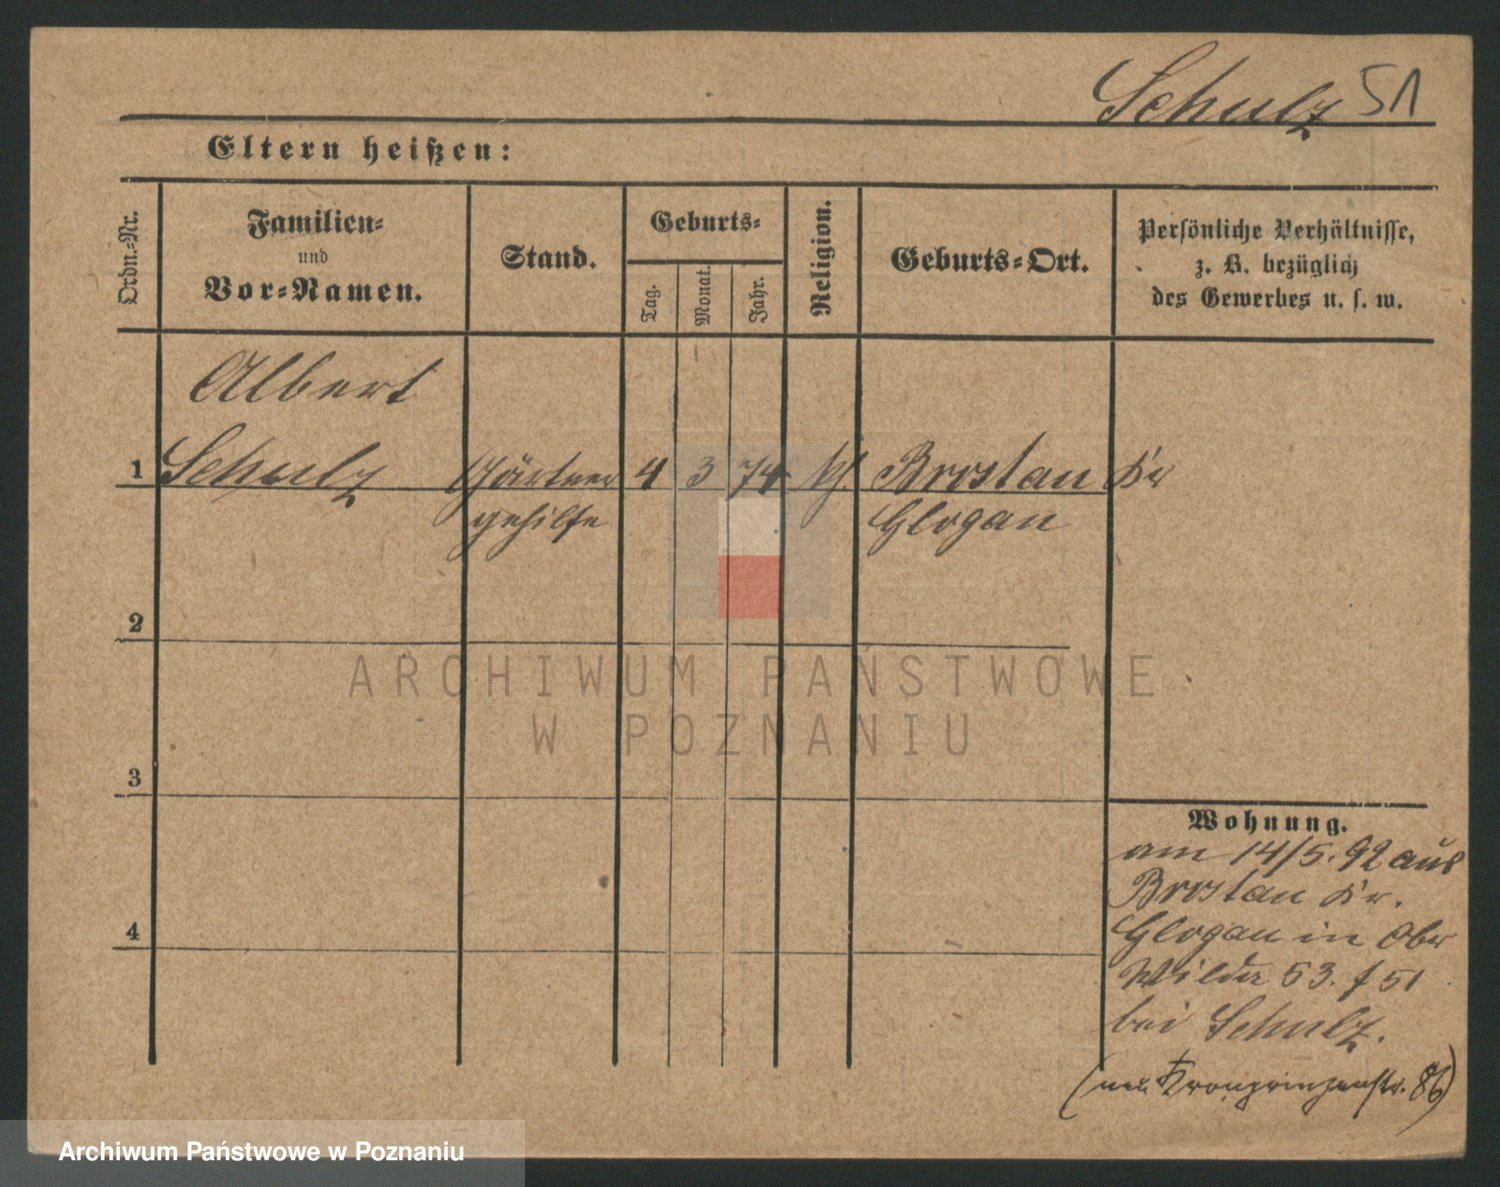 Schulz 51
Eltern heißen:
Ordn.-Nr.
Familien-
und
Vor-Namen.
Stand.
Geburts-
Tag.
Monat.
Jahr.
Religion.
Geburts-Ort.
Persönliche Verhältnisse,
z. B. bezüglich
des Gewerbes u. s. w.
Albert
1 Schulz Gärtner 4 3 74 Brostau Kr
gehilfe Glogau
2
3
4
Wohnung.
am 14/5. 92 aus
Brostau Kr.
Glogau in Ober
Wilda 53. f 51
bei Schulz.
(neu Kronprinzenstr. 86)
ARCHIWUM PAŃSTWOWE
W POZNANIU
Archiwum Państwowe w Poznaniu